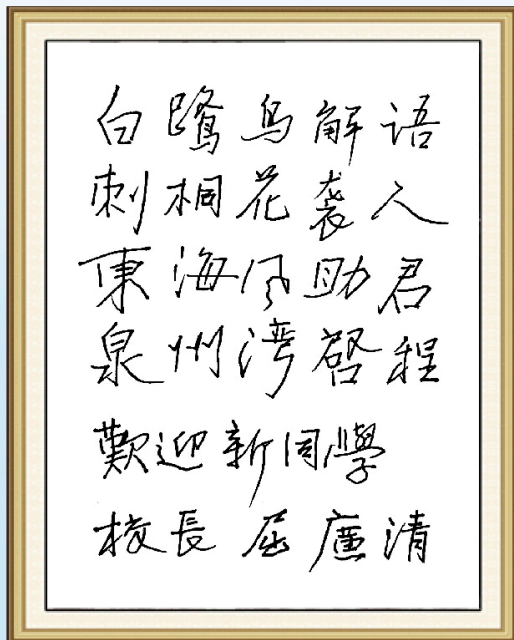 白鹭鸟解语
刺桐花袭人
東海风助君
泉州湾啓程
歡迎新同學
校長 屈廣清